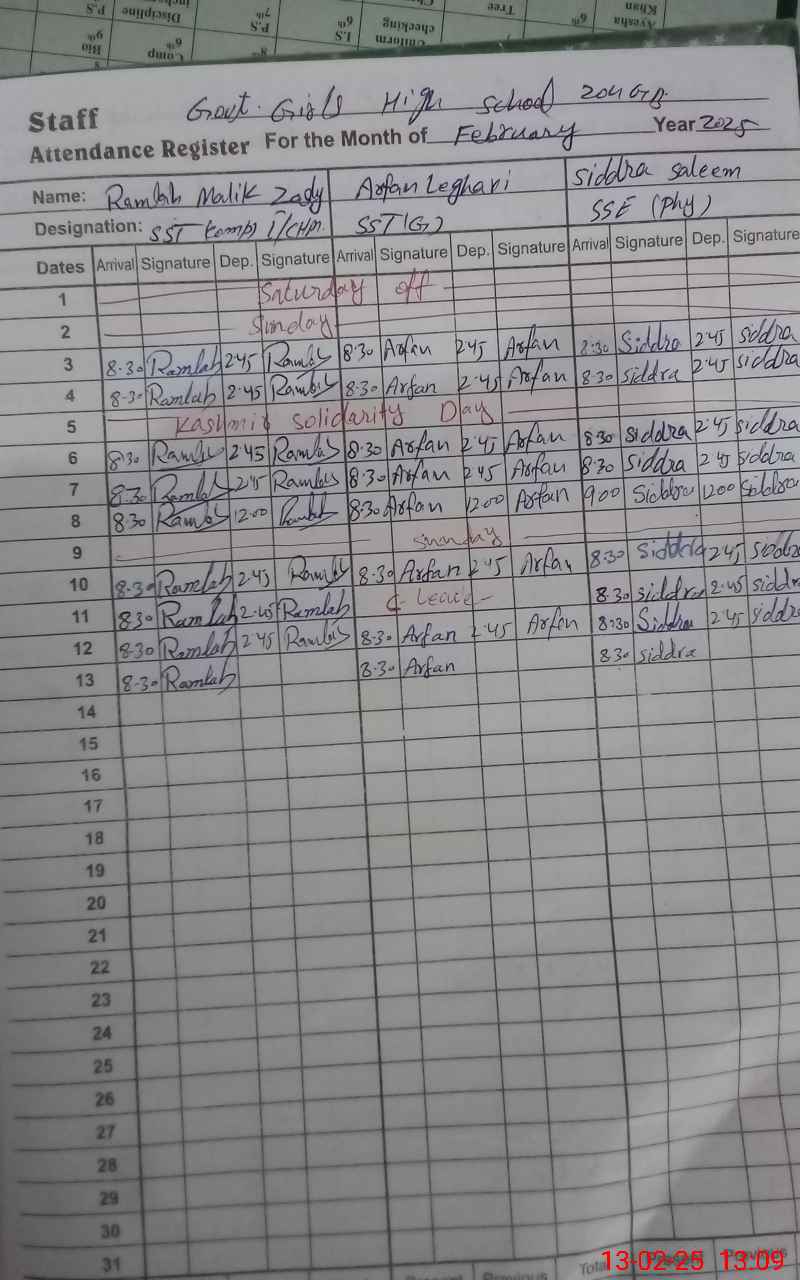 Discipline P.S
P.S 7th
checking
Tree
6th
Ayesha
Khan
Bio 9th
Comp 6th
I.S 6th
Uniform
Govt. Girls High School 204 GB
Staff
Attendance Register For the Month of February Year 2025
Name: Ramlah Malik Zady Arfan Leghari Siddra Saleem
Designation: SST Comp I/CHM. SST (G) SSE (Phy)
Dates Arrival Signature Dep. Signature Arrival Signature Dep. Signature Arrival Signature Dep. Signature
1 Saturday off
2 Sunday
3 8.30 Ramlah 2.45 Ramlah 8.30 Arfan 2.45 Arfan 8.30 Siddra 2.45 Siddra
4 8.30 Ramlah 2.45 Ramlah 8.30 Arfan 2.45 Arfan 8.30 Siddra 2.45 Siddra
5 Kashmir Solidarity Day
6 8.30 Ramlah 2.45 Ramlah 8.30 Arfan 2.45 Arfan 8.30 Siddra 2.45 Siddra
7 8.30 Ramlah 2.45 Ramlah 8.30 Arfan 2.45 Arfan 8.30 Siddra 2.45 Siddra
8 8.30 Ramlah 12.00 Ramlah 8.30 Arfan 12.00 Arfan 9.00 Siddra 12.00 Siddra
9 Sunday
10 8.30 Ramlah 2.45 Ramlah 8.30 Arfan 2.45 Arfan 8.30 Siddra 2.45 Siddra
11 8.30 Ramlah 2.45 Ramlah C-Leave 8.30 Siddra 2.45 Siddra
12 8.30 Ramlah 2.45 Ramlah 8.30 Arfan 2.45 Arfan 8.30 Siddra 2.45 Siddra
13 8.30 Ramlah 8.30 Arfan 8.30 Siddra
14
15
16
17
18
19
20
21
22
23
24
25
26
27
28
29
30
31
Previous Total Present Previous
13-02-25 13:09